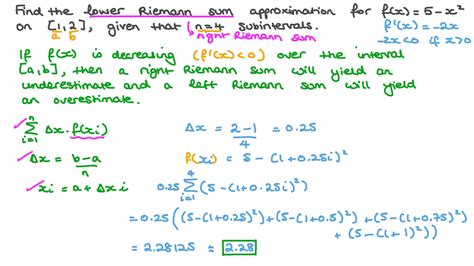 Find the lower Riemann sum approximation for f(x) = 5 - x²
on [1, 2], given that n = 4 subintervals.
a b
right Riemann sum
f'(x) = -2x
-2x < 0 if x > 0
If f(x) is decreasing (f'(x) < 0) over the interval
[a, b], then a right Riemann sum will yield an
underestimate and a left Riemann sum will yield
an overestimate.
✓ n Σ i=1 Δx · f(xi)
✓ Δx = b - a / n
✓ xi = a + Δx i
Δx = 2 - 1 / 4 = 0.25
f(xi) = 5 - (1 + 0.25i)²
0.25 4 Σ i=1 (5 - (1 + 0.25i)²)
= 0.25 ((5 - (1 + 0.25)²) + (5 - (1 + 0.5)²) + (5 - (1 + 0.75)²)
+ (5 - (1 + 1)²))
= 2.28125 ≈ 2.28